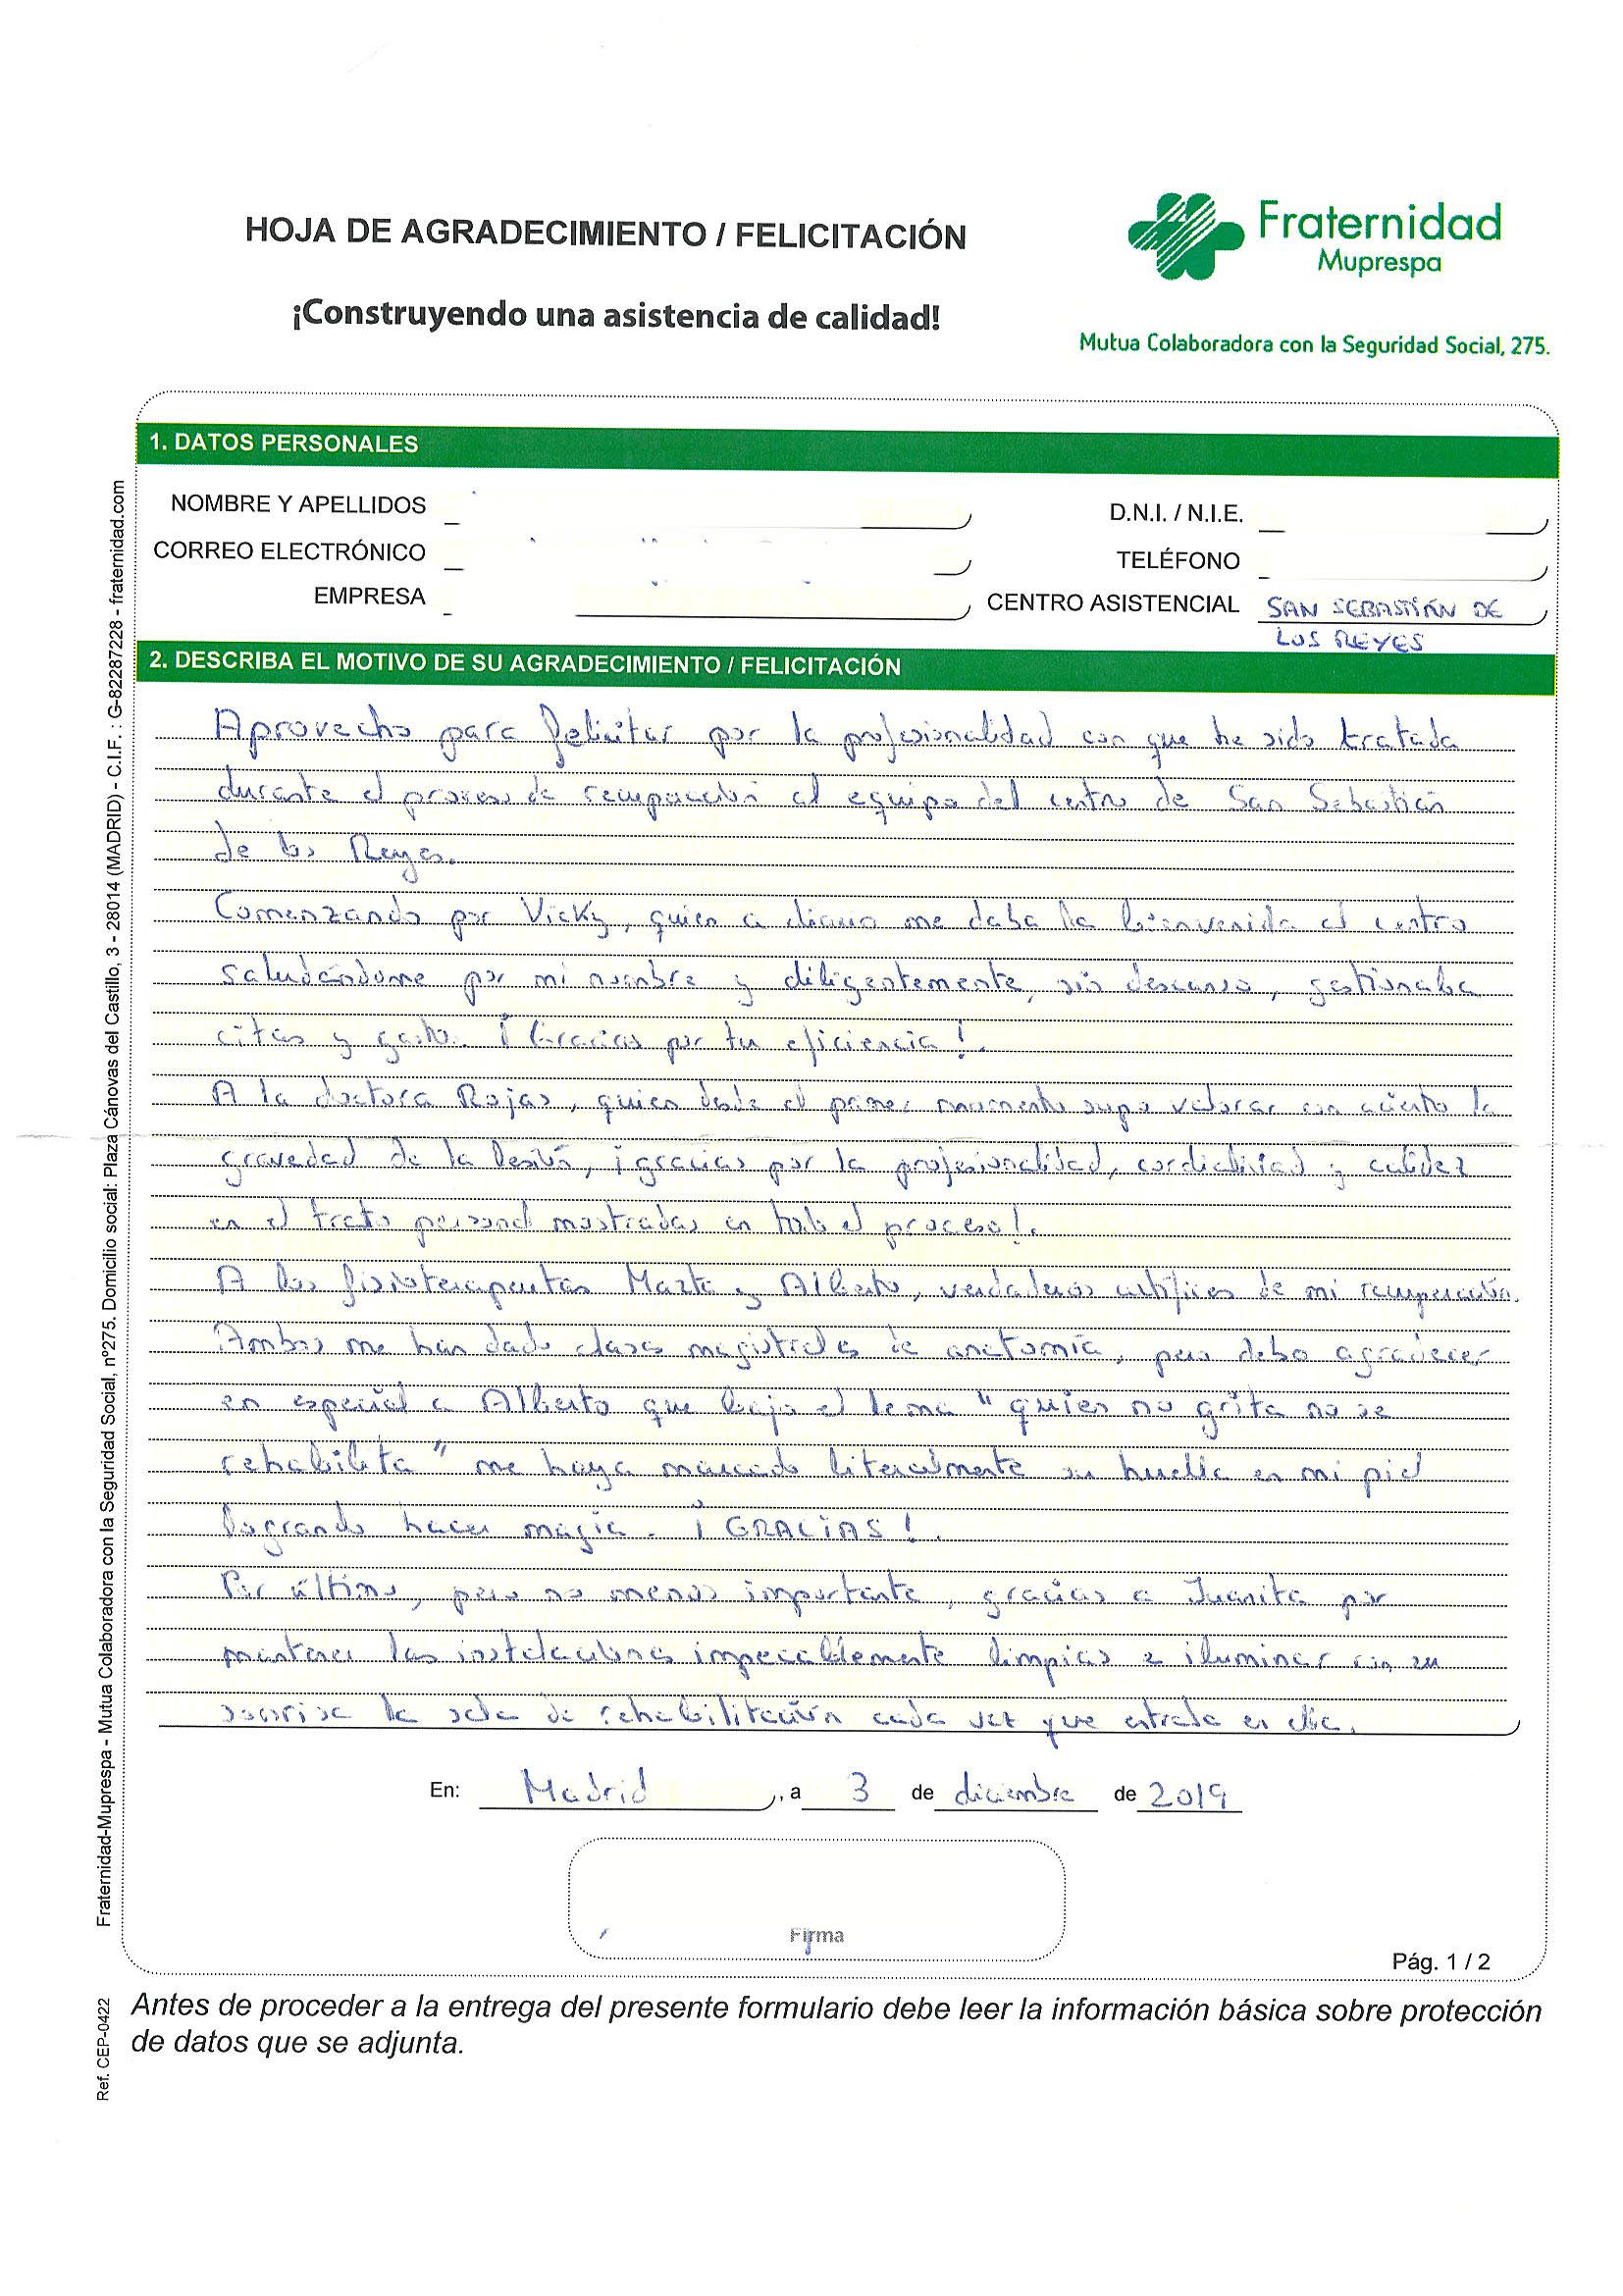 HOJA DE AGRADECIMIENTO / FELICITACIÓN
¡Construyendo una asistencia de calidad!
Fraternidad
Muprespa
Mutua Colaboradora con la Seguridad Social, 275.
1. DATOS PERSONALES
NOMBRE Y APELLIDOS
D.N.I. / N.I.E.
CORREO ELECTRÓNICO
TELÉFONO
EMPRESA
CENTRO ASISTENCIAL SAN SEBASTIÁN DE
LOS REYES
2. DESCRIBA EL MOTIVO DE SU AGRADECIMIENTO / FELICITACIÓN
Aprovecho para felicitar por la profesionalidad con que he sido tratada
durante el proceso de recuperación al equipo del centro de San Sebastián
de los Reyes.
Comenzando por Vicky, quien a diario me daba la bienvenida al centro
saludándome por mi nombre y diligentemente, sin descanso, gestionaba
citas y gastos. ¡Gracias por tu eficiencia!.
A la doctora Rojas, quien desde el primer momento supo valorar con acierto la
gravedad de la lesión, ¡gracias por la profesionalidad, cordialidad y calidez
en el trato personal mostradas en todo el proceso!.
A los fisioterapeutas Marta y Alberto, verdaderos artífices de mi recuperación.
Ambos me han dado clases magistrales de anatomía, pero debo agradecer
en especial a Alberto que bajo el lema "quien no grita no se
rehabilita" me haya marcado literalmente su huella en mi piel
logrando hacer magia. ¡GRACIAS!.
Por último, pero no menos importante, gracias a Juanita por
mantener las instalaciones impecablemente limpias e iluminar con su
sonrisa la sala de rehabilitación cada vez que entraba en ella.
En: Madrid, a 3 de diciembre de 2019
Firma
Pág. 1 / 2
Antes de proceder a la entrega del presente formulario debe leer la información básica sobre protección
de datos que se adjunta.
Fraternidad-Muprespa - Mutua Colaboradora con la Seguridad Social, nº275. Domicilio social: Plaza Cánovas del Castillo, 3 - 28014 (MADRID) - C.I.F. : G-82287228 - fraternidad.com
Ref. CEP-0422